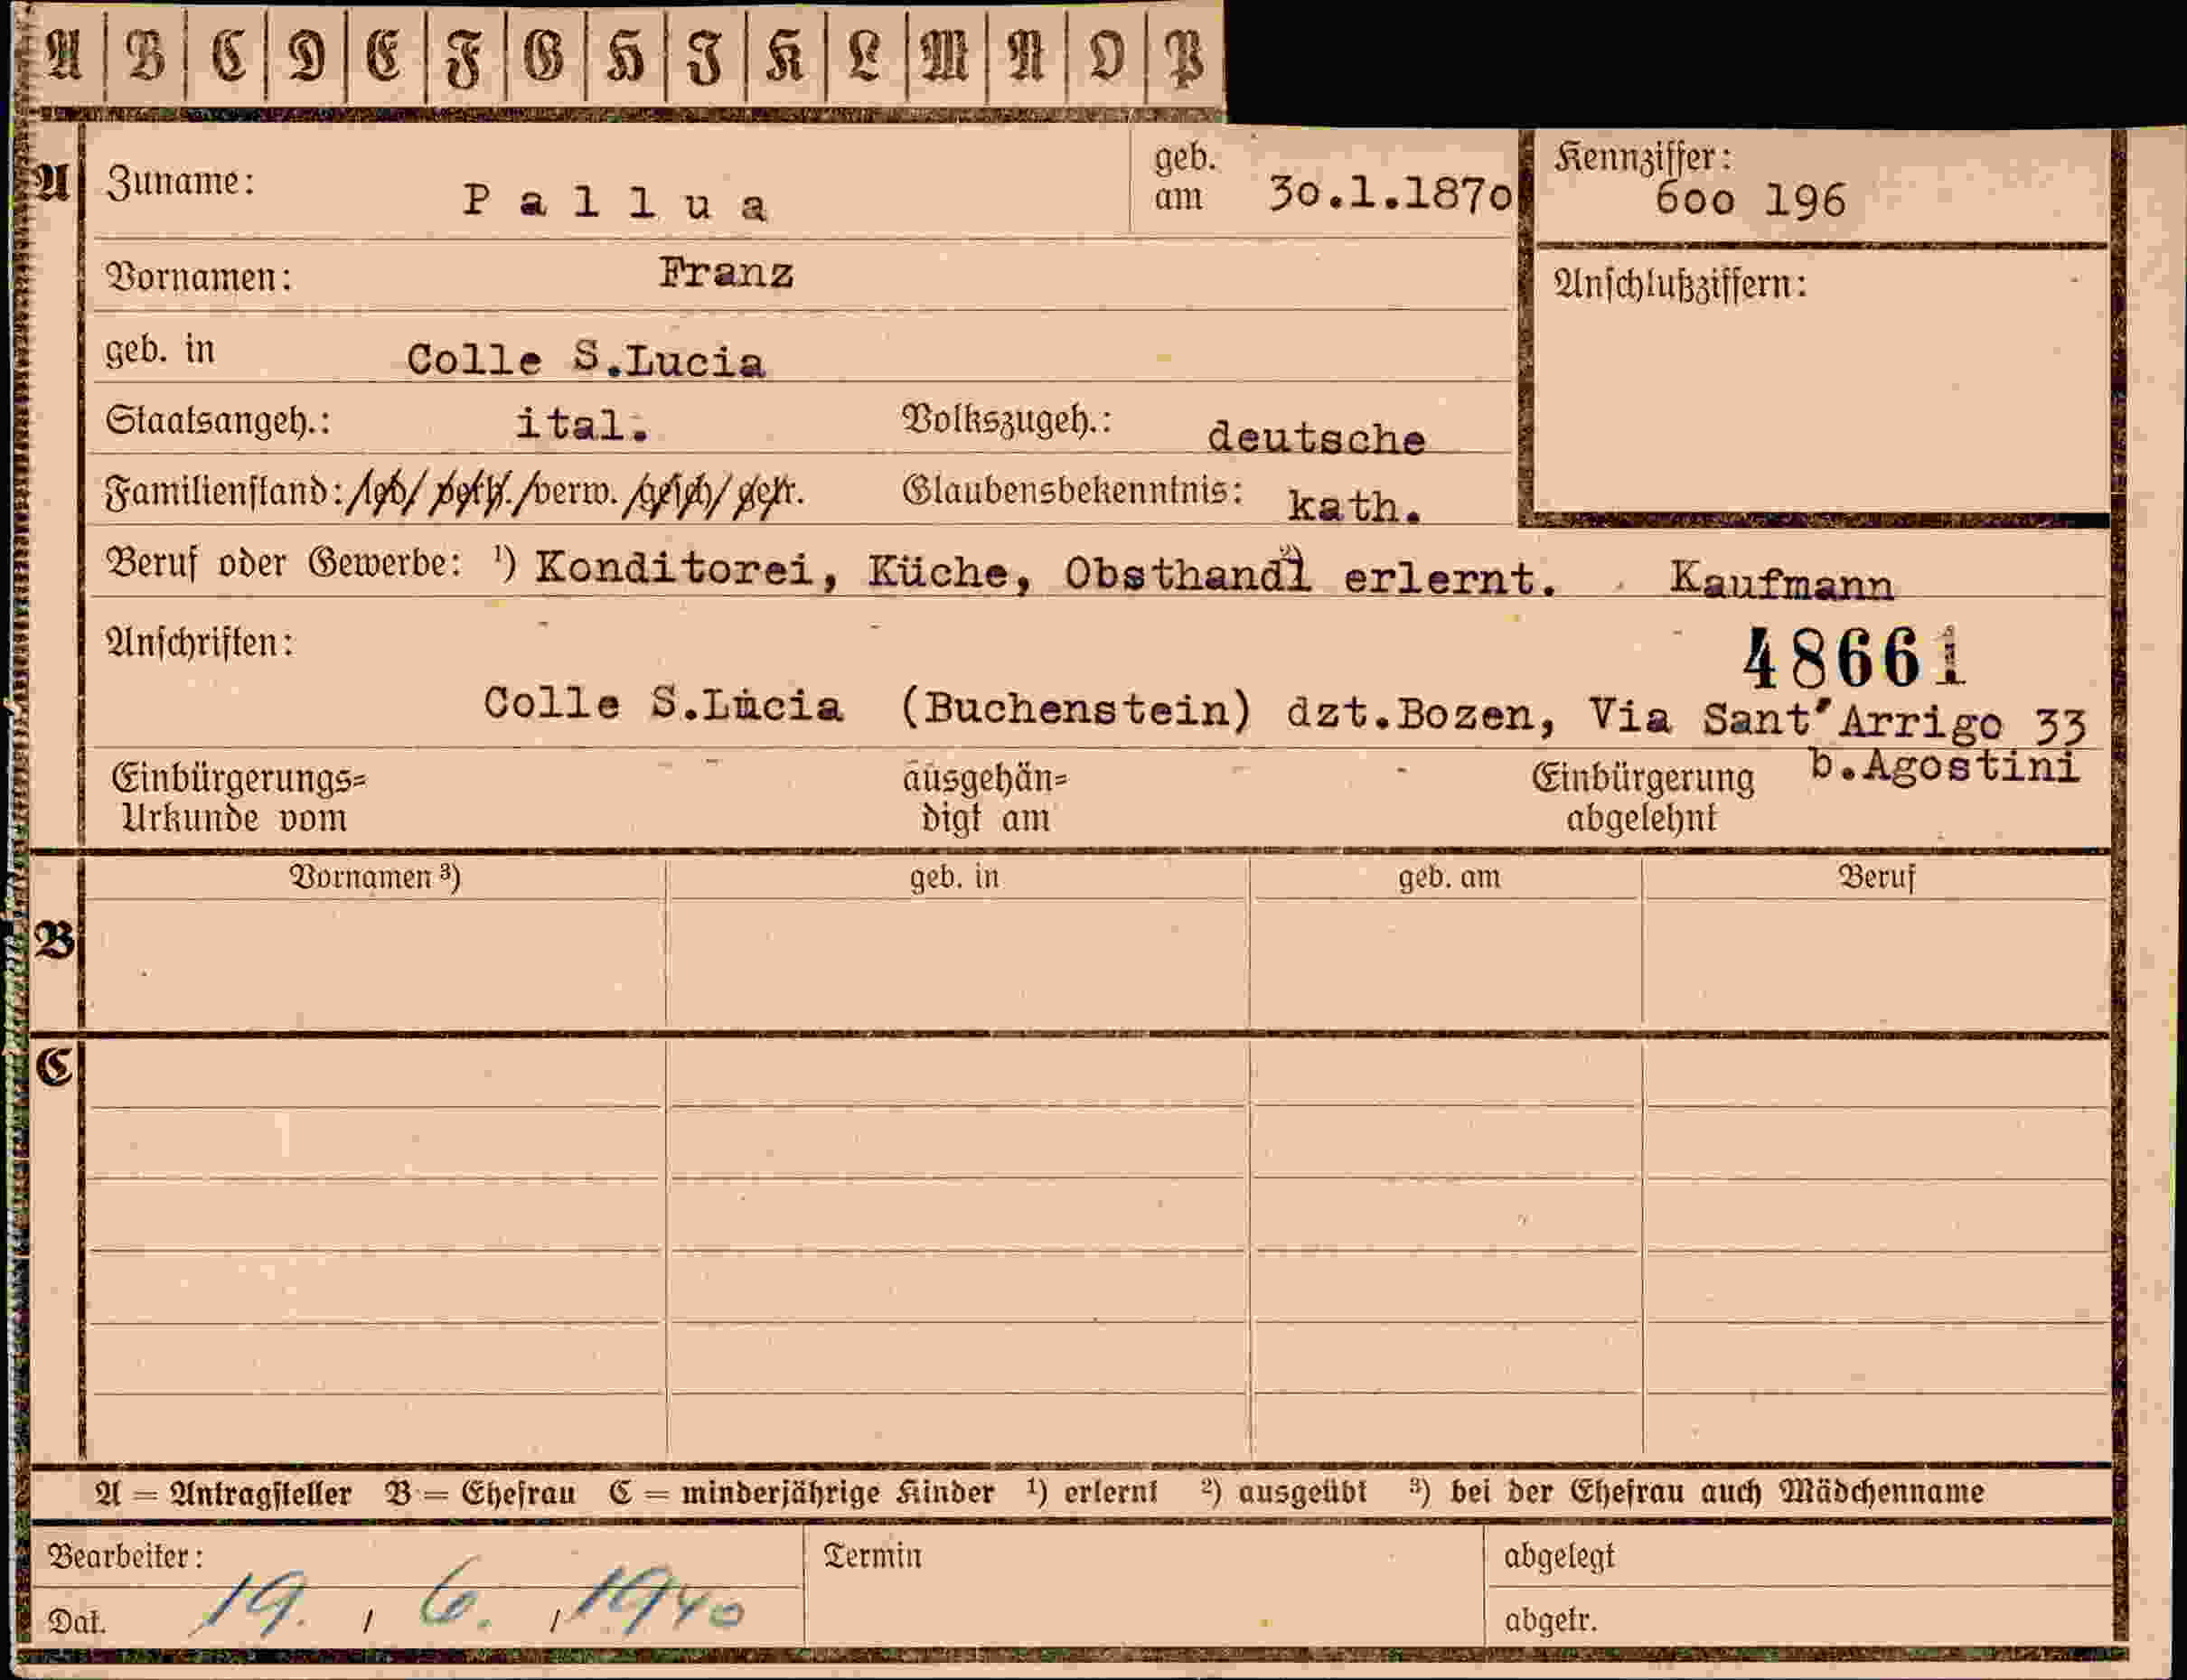 A B C D E F G H I K L M N O P
A Zuname: Pallua geb. am 30.1.1870 Kennziffer: 600 196
Vornamen: Franz Anschlußziffern:
geb. in Colle S.Lucia
Staatsangeh.: ital. Volkszugeh.: deutsche
Familienstand: /led/ verh./verw./gesch/ getr. Glaubensbekenntnis: kath.
Beruf oder Gewerbe: ¹) Konditorei, Küche, Obsthandl ²) erlernt. Kaufmann
Anschriften: 48661
Colle S.Lucia (Buchenstein) dzt.Bozen, Via Sant'Arrigo 33
b.Agostini
Einbürgerungs= ausgehän= Einbürgerung
Urkunde vom digt am abgelehnt
Vornamen ³) geb. in geb. am Beruf
B
C
A = Antragsteller B = Ehefrau C = minderjährige Kinder ¹) erlernt ²) ausgeübt ³) bei der Ehefrau auch Mädchenname
Bearbeiter: Termin abgelegt
Dat. 19. / 6. / 1940 abgetr.